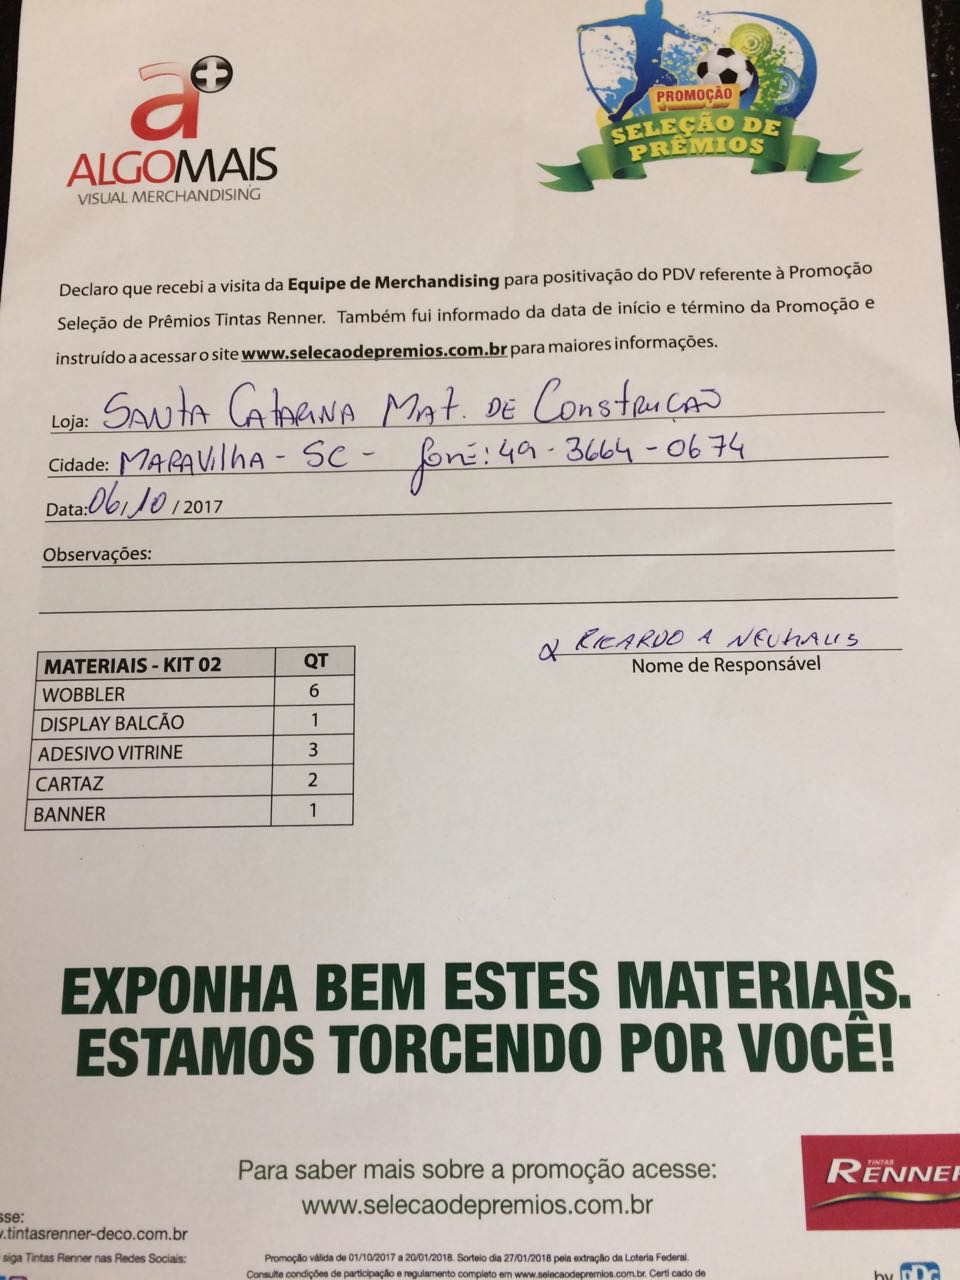 a+
ALGOMAIS
VISUAL MERCHANDISING
PROMOÇÃO
SELEÇÃO DE
PRÊMIOS
Declaro que recebi a visita da Equipe de Merchandising para positivação do PDV referente à Promoção
Seleção de Prêmios Tintas Renner. Também fui informado da data de início e término da Promoção e
instruído a acessar o site www.selecaodepremios.com.br para maiores informações.
Loja: SANTA CATARINA MAT. DE CONSTRUÇÃO
Cidade: MARAVILHA - SC - fone: 49 - 3664 - 0674
Data: 06/10/2017
Observações:
RICARDO A NEUHAUS
Nome de Responsável
MATERIAIS - KIT 02 QT
WOBBLER 6
DISPLAY BALCÃO 1
ADESIVO VITRINE 3
CARTAZ 2
BANNER 1
EXPONHA BEM ESTES MATERIAIS.
ESTAMOS TORCENDO POR VOCÊ!
Para saber mais sobre a promoção acesse:
www.selecaodepremios.com.br
TINTAS
RENNER
sse:
.tintasrenner-deco.com.br
siga Tintas Renner nas Redes Sociais:
Promoção válida de 01/10/2017 a 20/01/2018. Sorteio dia 27/01/2018 pela extração da Loteria Federal.
Consulte condições de participação e regulamento completo em www.selecaodepremios.com.br. Certi cado de
by PPG